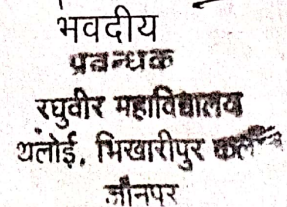 भवदीय
प्रबन्धक
रघुवीर महाविद्यालय
थलोई, भिखारीपुर कलां
जौनपर